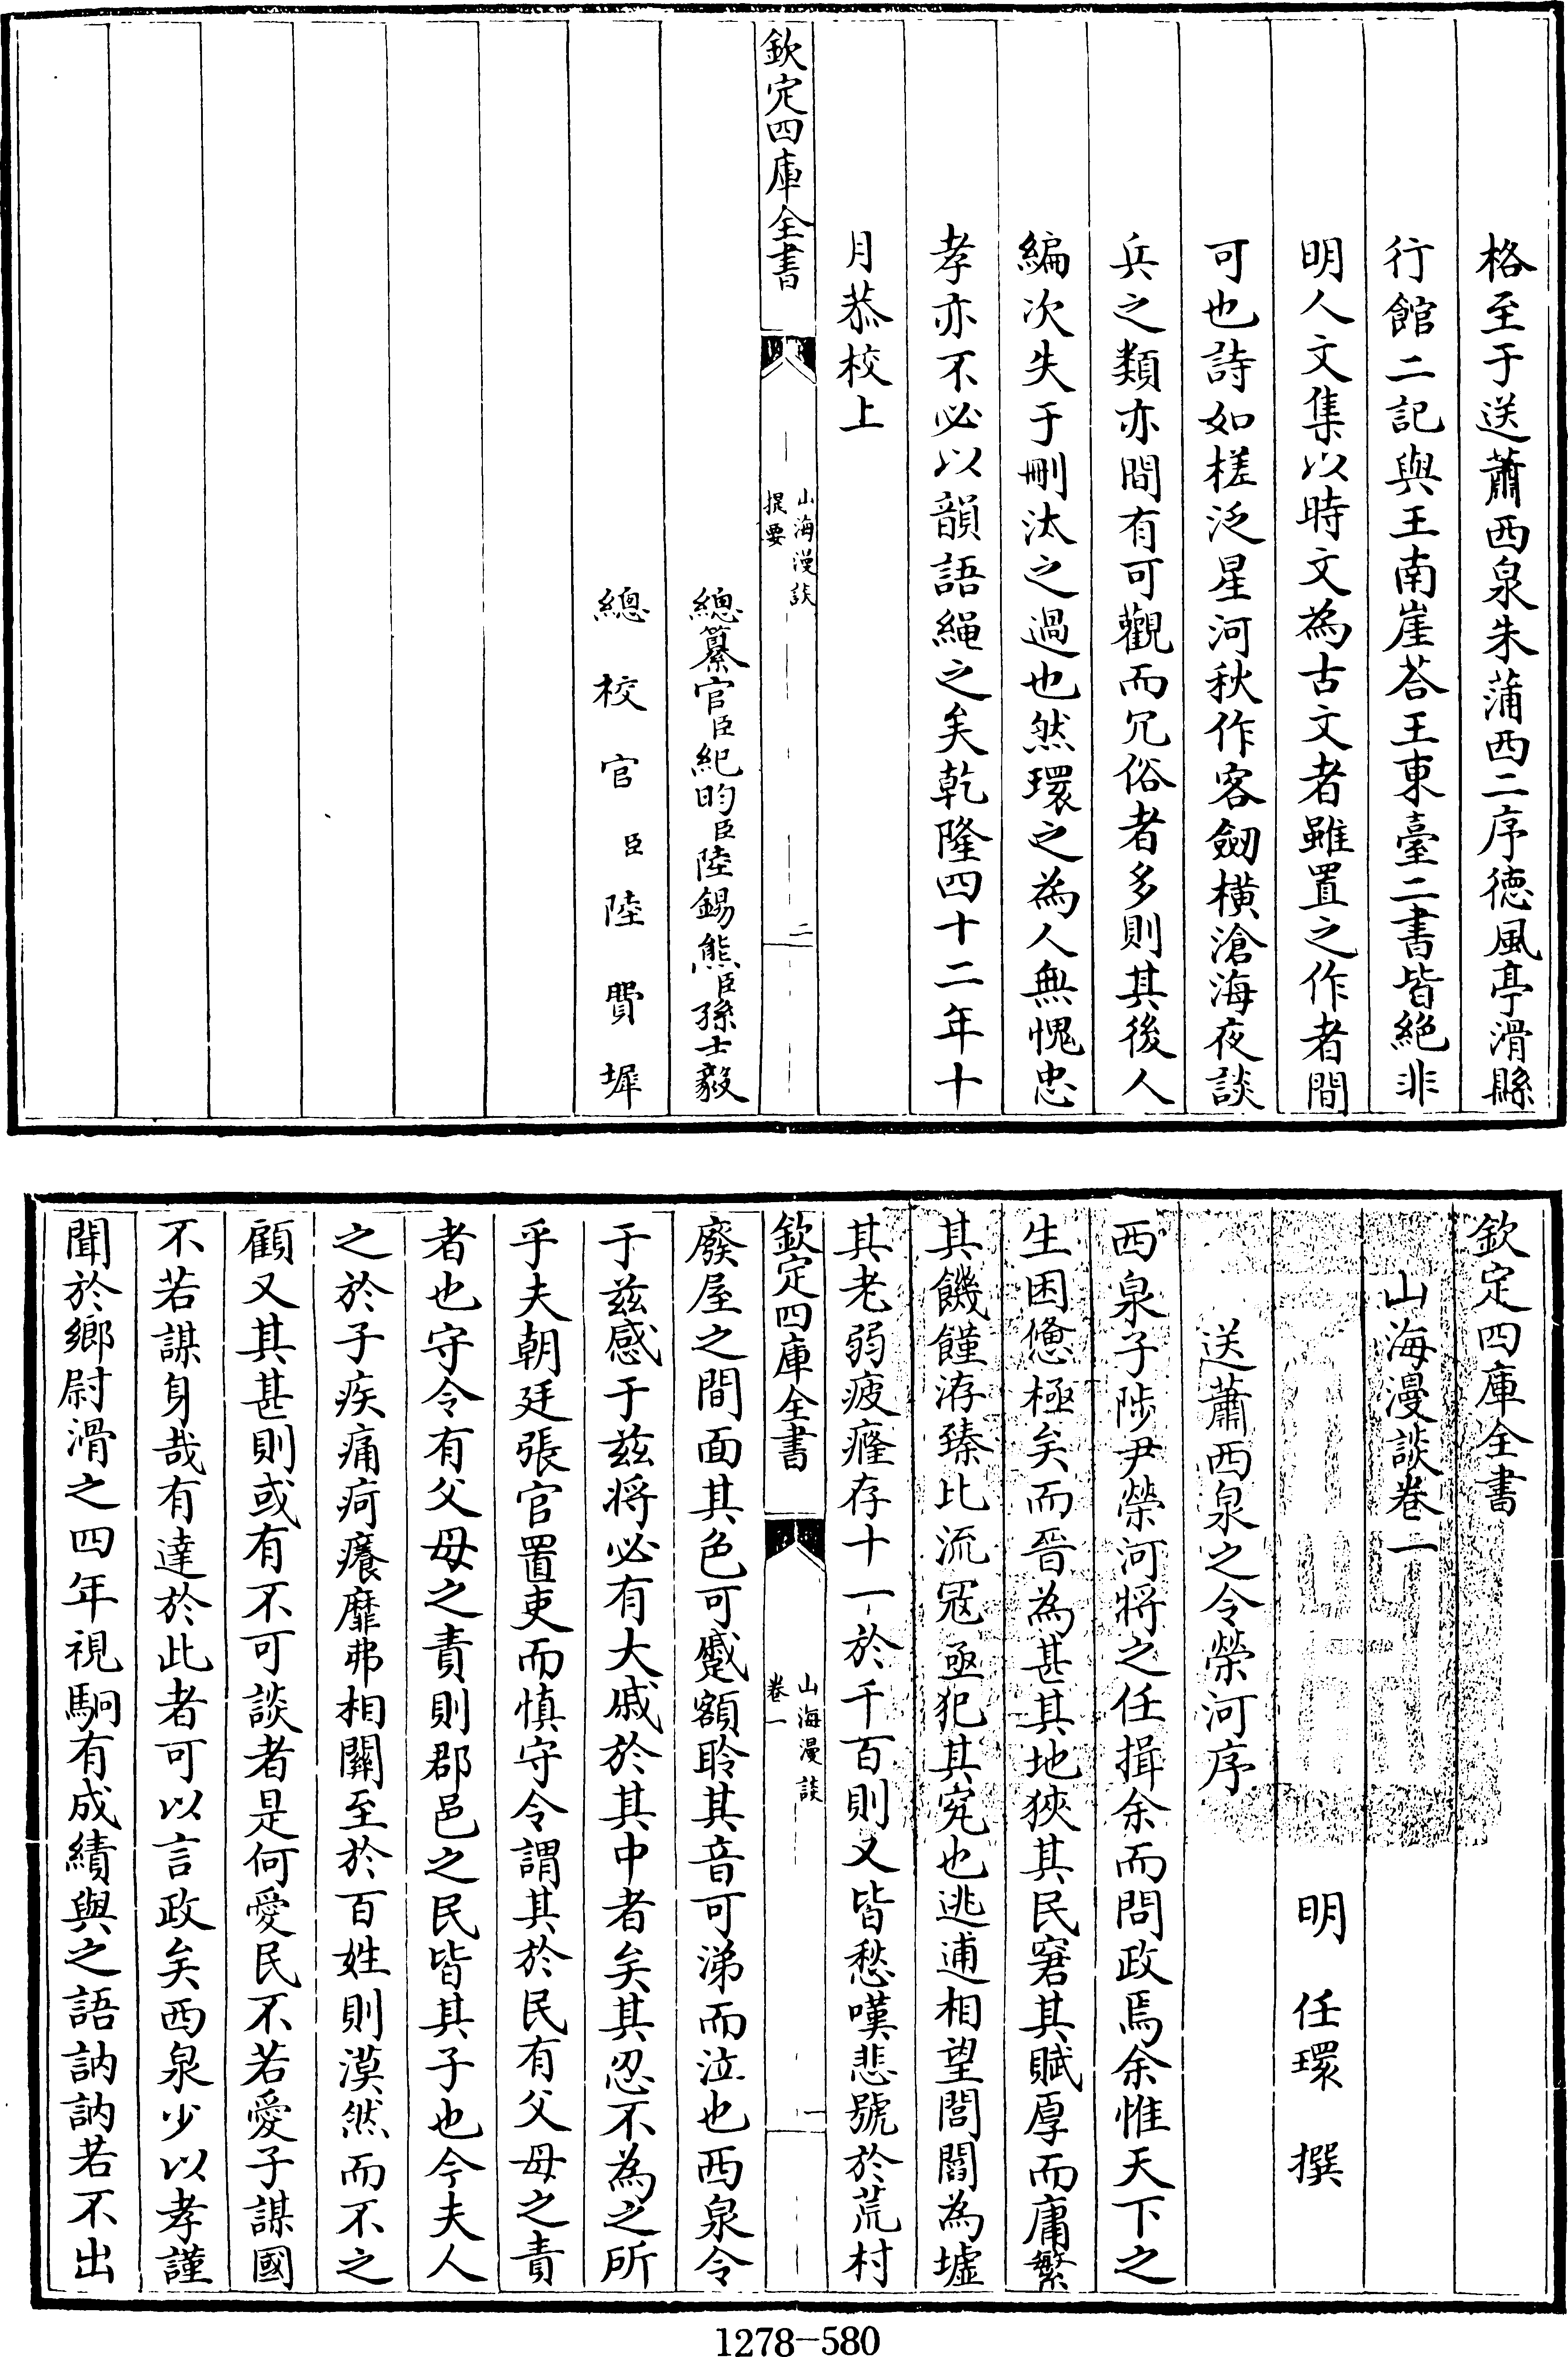 格至于送蕭西泉朱蒲西二序徳風亭滑縣
行館二記與王南崖荅王東臺二書皆絶非
明人文集以時文為古文者雖置之作者間
可也詩如槎泛星河秋作客劒横滄海夜談
兵之類亦間有可觀而冗俗者多則其後人
編次失于刪汰之過也然環之為人無愧忠
孝亦不必以韻語繩之矣乾隆四十二年十
月恭校上
欽定四庫全書
山海漫談
提要
二
總纂官臣紀昀臣陸錫熊臣孫士毅
總校官臣陸費墀
欽定四庫全書
山海漫談卷一
明 任環 撰
送蕭西泉之令榮河序
西泉子陟尹榮河將之任揖余而問政焉余惟天下之
生困憊極矣而晉為甚其地狹其民窘其賦厚而庸繁
其饑饉洊臻比流冦亟犯其究也逃逋相望閭閻為墟
其老弱疲癃存十一於千百則又皆愁嘆悲號於荒村
欽定四庫全書
山海漫談
卷一
一
廢屋之間面其色可蹙額聆其音可涕而泣也西泉令
于兹感于兹將必有大戚於其中者矣其忍不為之所
乎夫朝廷張官置吏而慎守令謂其於民有父母之責
者也守令有父母之責則郡邑之民皆其子也今夫人
之於子疾痛疴癢靡弗相關至於百姓則漠然而不之
顧又其甚則或有不可談者是何愛民不若愛子謀國
不若謀身哉有達於此者可以言政矣西泉少以孝謹
聞於鄉尉滑之四年視駉有成績與之語訥訥若不出
1278-580